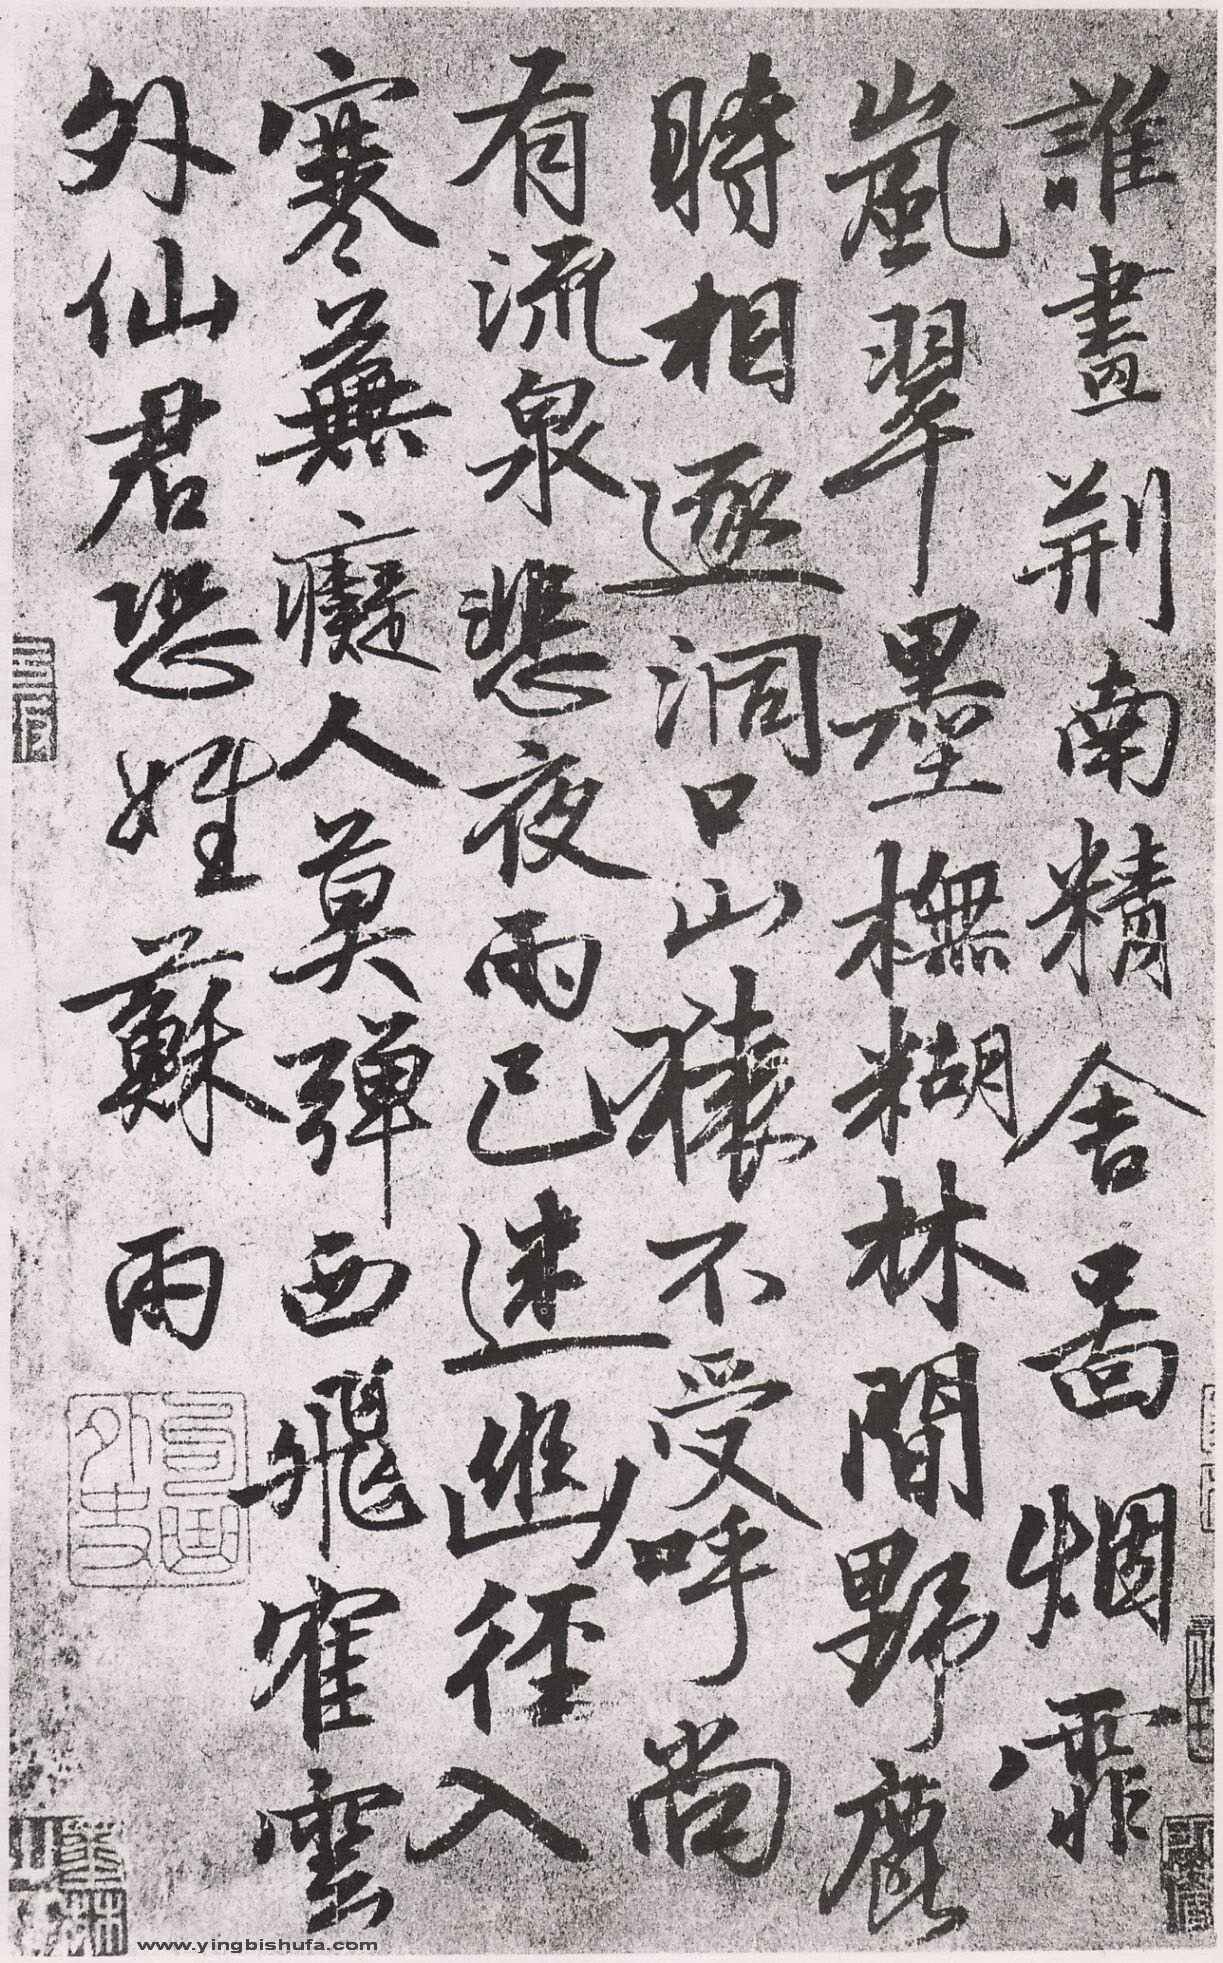 誰畫荊南精舍啚烟霏
嵐翠墨橅糊林間野鹿
時相逐洞口山猿不受呼尚
有流泉悲夜雨已迷幽徑入
寒蕪癡人莫彈西飛隺雲
外仙君恐姓蘇　雨
句曲外史
www.yingbishufa.com